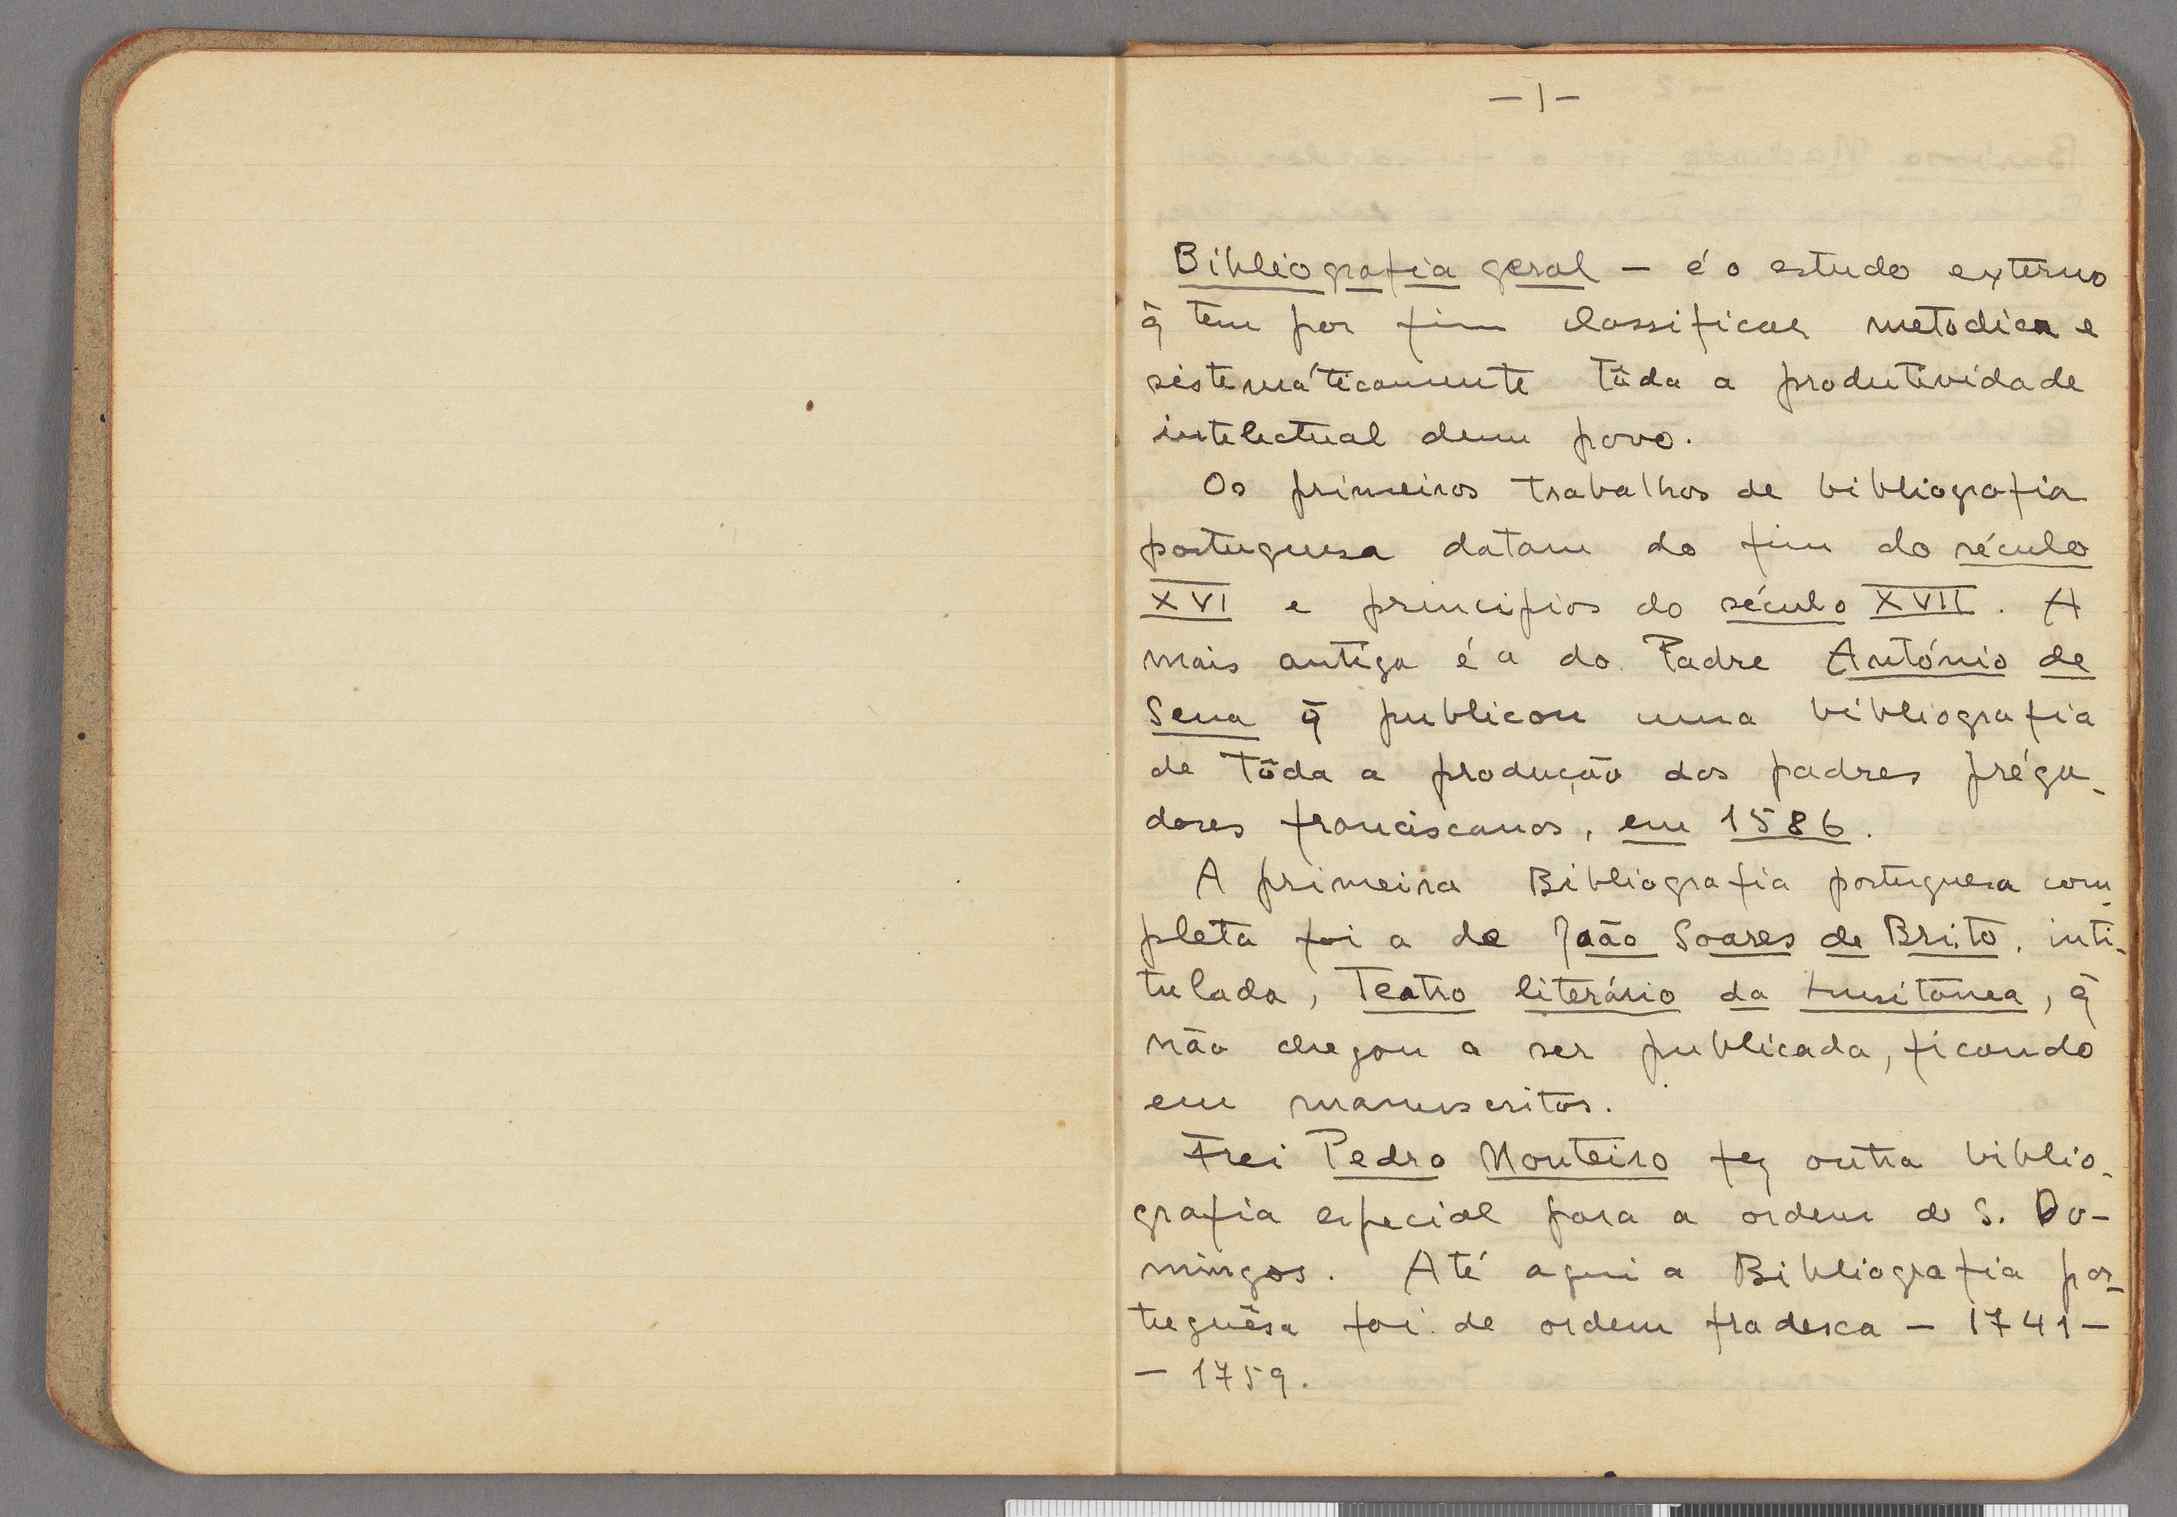 -1-
Bibliografia geral - é o estudo externo
q̃ tem por fim classificar metodica e
sistemáticamente tôda a produtividade
intelectual dum povo.
Os primeiros trabalhos de bibliografia
portuguesa datam do fim do século
XVI e principios do século XVII. A
mais antiga é a do Padre António de
Sena q̃ publicou uma bibliografia
de tôda a produção dos padres préga-
dores franciscanos, em 1586.
A primeira Bibliografia portuguesa com-
pleta foi a de João Soares de Brito, inti-
tulada, Teatro literário da Lusitânea, q̃
não chegou a ser publicada, ficando
em manuscritos.
Frei Pedro Monteiro fez outra biblio-
grafia especial para a ordem de S. Do-
mingos. Até aqui a Bibliografia por-
tuguêsa foi de ordem fradesca - 1741-
- 1759.